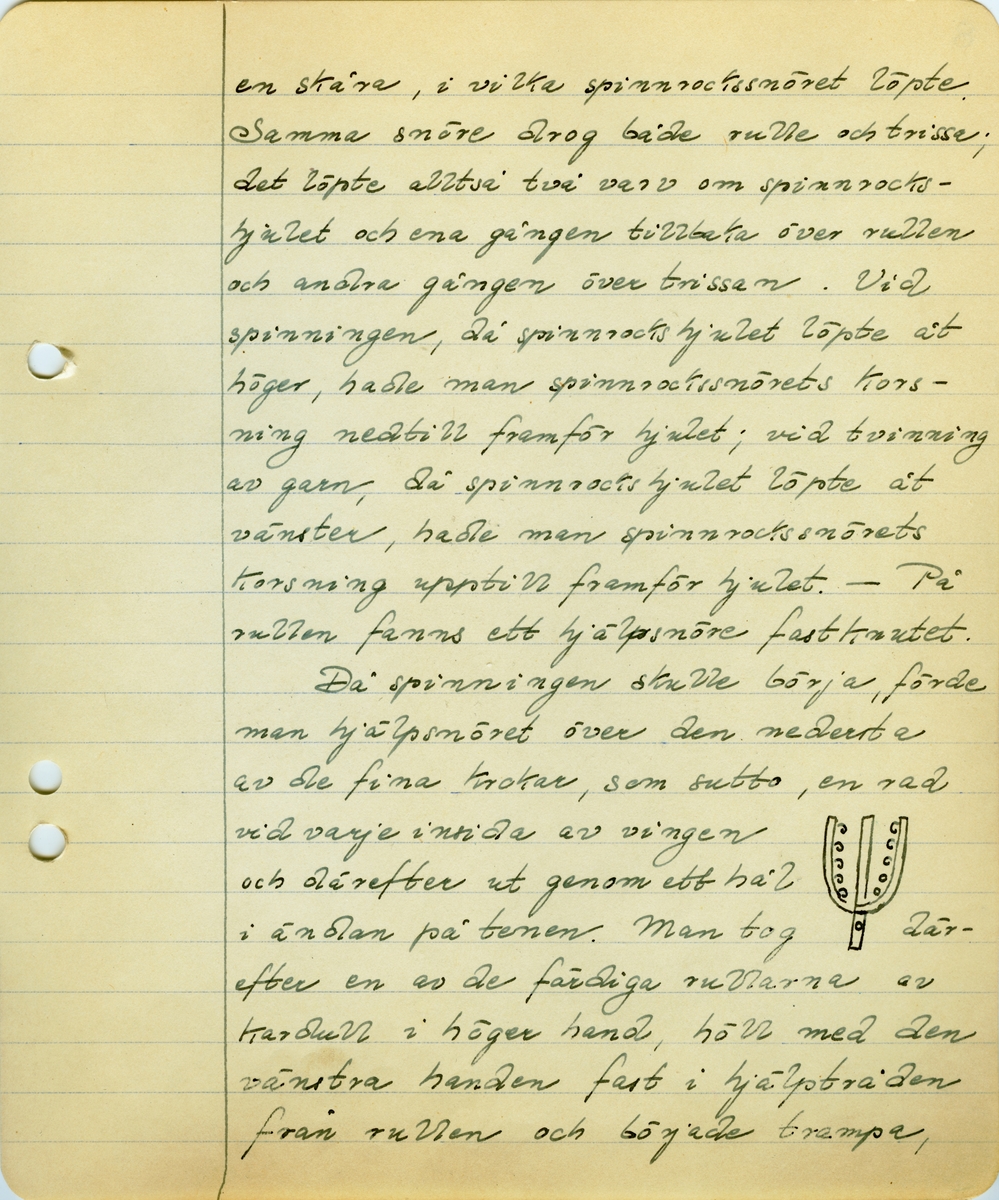 en skåra, i vilka spinnrockssnöret löpte.
Samma snöre drog både rulle och trissa;
det löpte alltså två varv om spinnrocks-
hjulet och ena gången tillbaka över rullen
och andra gången över trissan. Vid
spinningen, då spinnrockshjulet löpte åt
höger, hade man spinnrockssnörets kors-
ning nedtill framför hjulet; vid tvinning
av garn, då spinnrockshjulet löpte åt
vänster, hade man spinnrockssnörets
korsning upptill framför hjulet. — På
rullen fanns ett hjälpsnöre fastknutet.
Då spinningen skulle börja, förde
man hjälpsnöret över den nedersta
av de fina krokar, som sutto, en rad
vid varje insida av vingen
och därefter ut genom ett hål
i ändan på tenen. Man tog där-
efter en av de färdiga rullarna av
kardull i höger hand, höll med den
vänstra handen fast i hjälptråden
från rullen och började trampa,